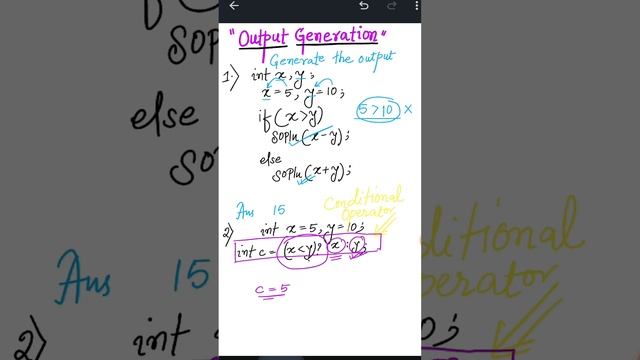 "Output Generation"
Generate the output
1.) int x, y;
x = 5, y = 10;
if (x > y)
5 > 10 ×
Sopln (x - y);
else
Sopln (x + y);
Ans 15
Conditional
Operator
2) int x = 5, y = 10;
int c = (x < y)? x : y;
c = 5